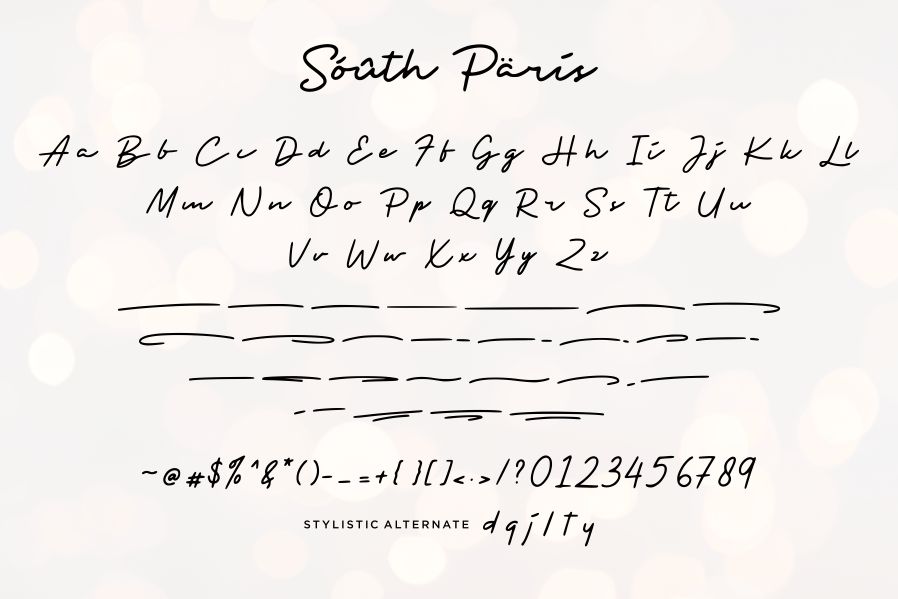 Sóûth Pärís
Aa Bb Cc Dd Ee Ff Gg Hh Ii Jj Kk Ll
Mm Nn Oo Pp Qq Rr Ss Tt Uu
Vv Ww Xx Yy Zz
~@#$%^&*()-_=+{}[]<·>/?0123456789
STYLISTIC ALTERNATE d q j l t y